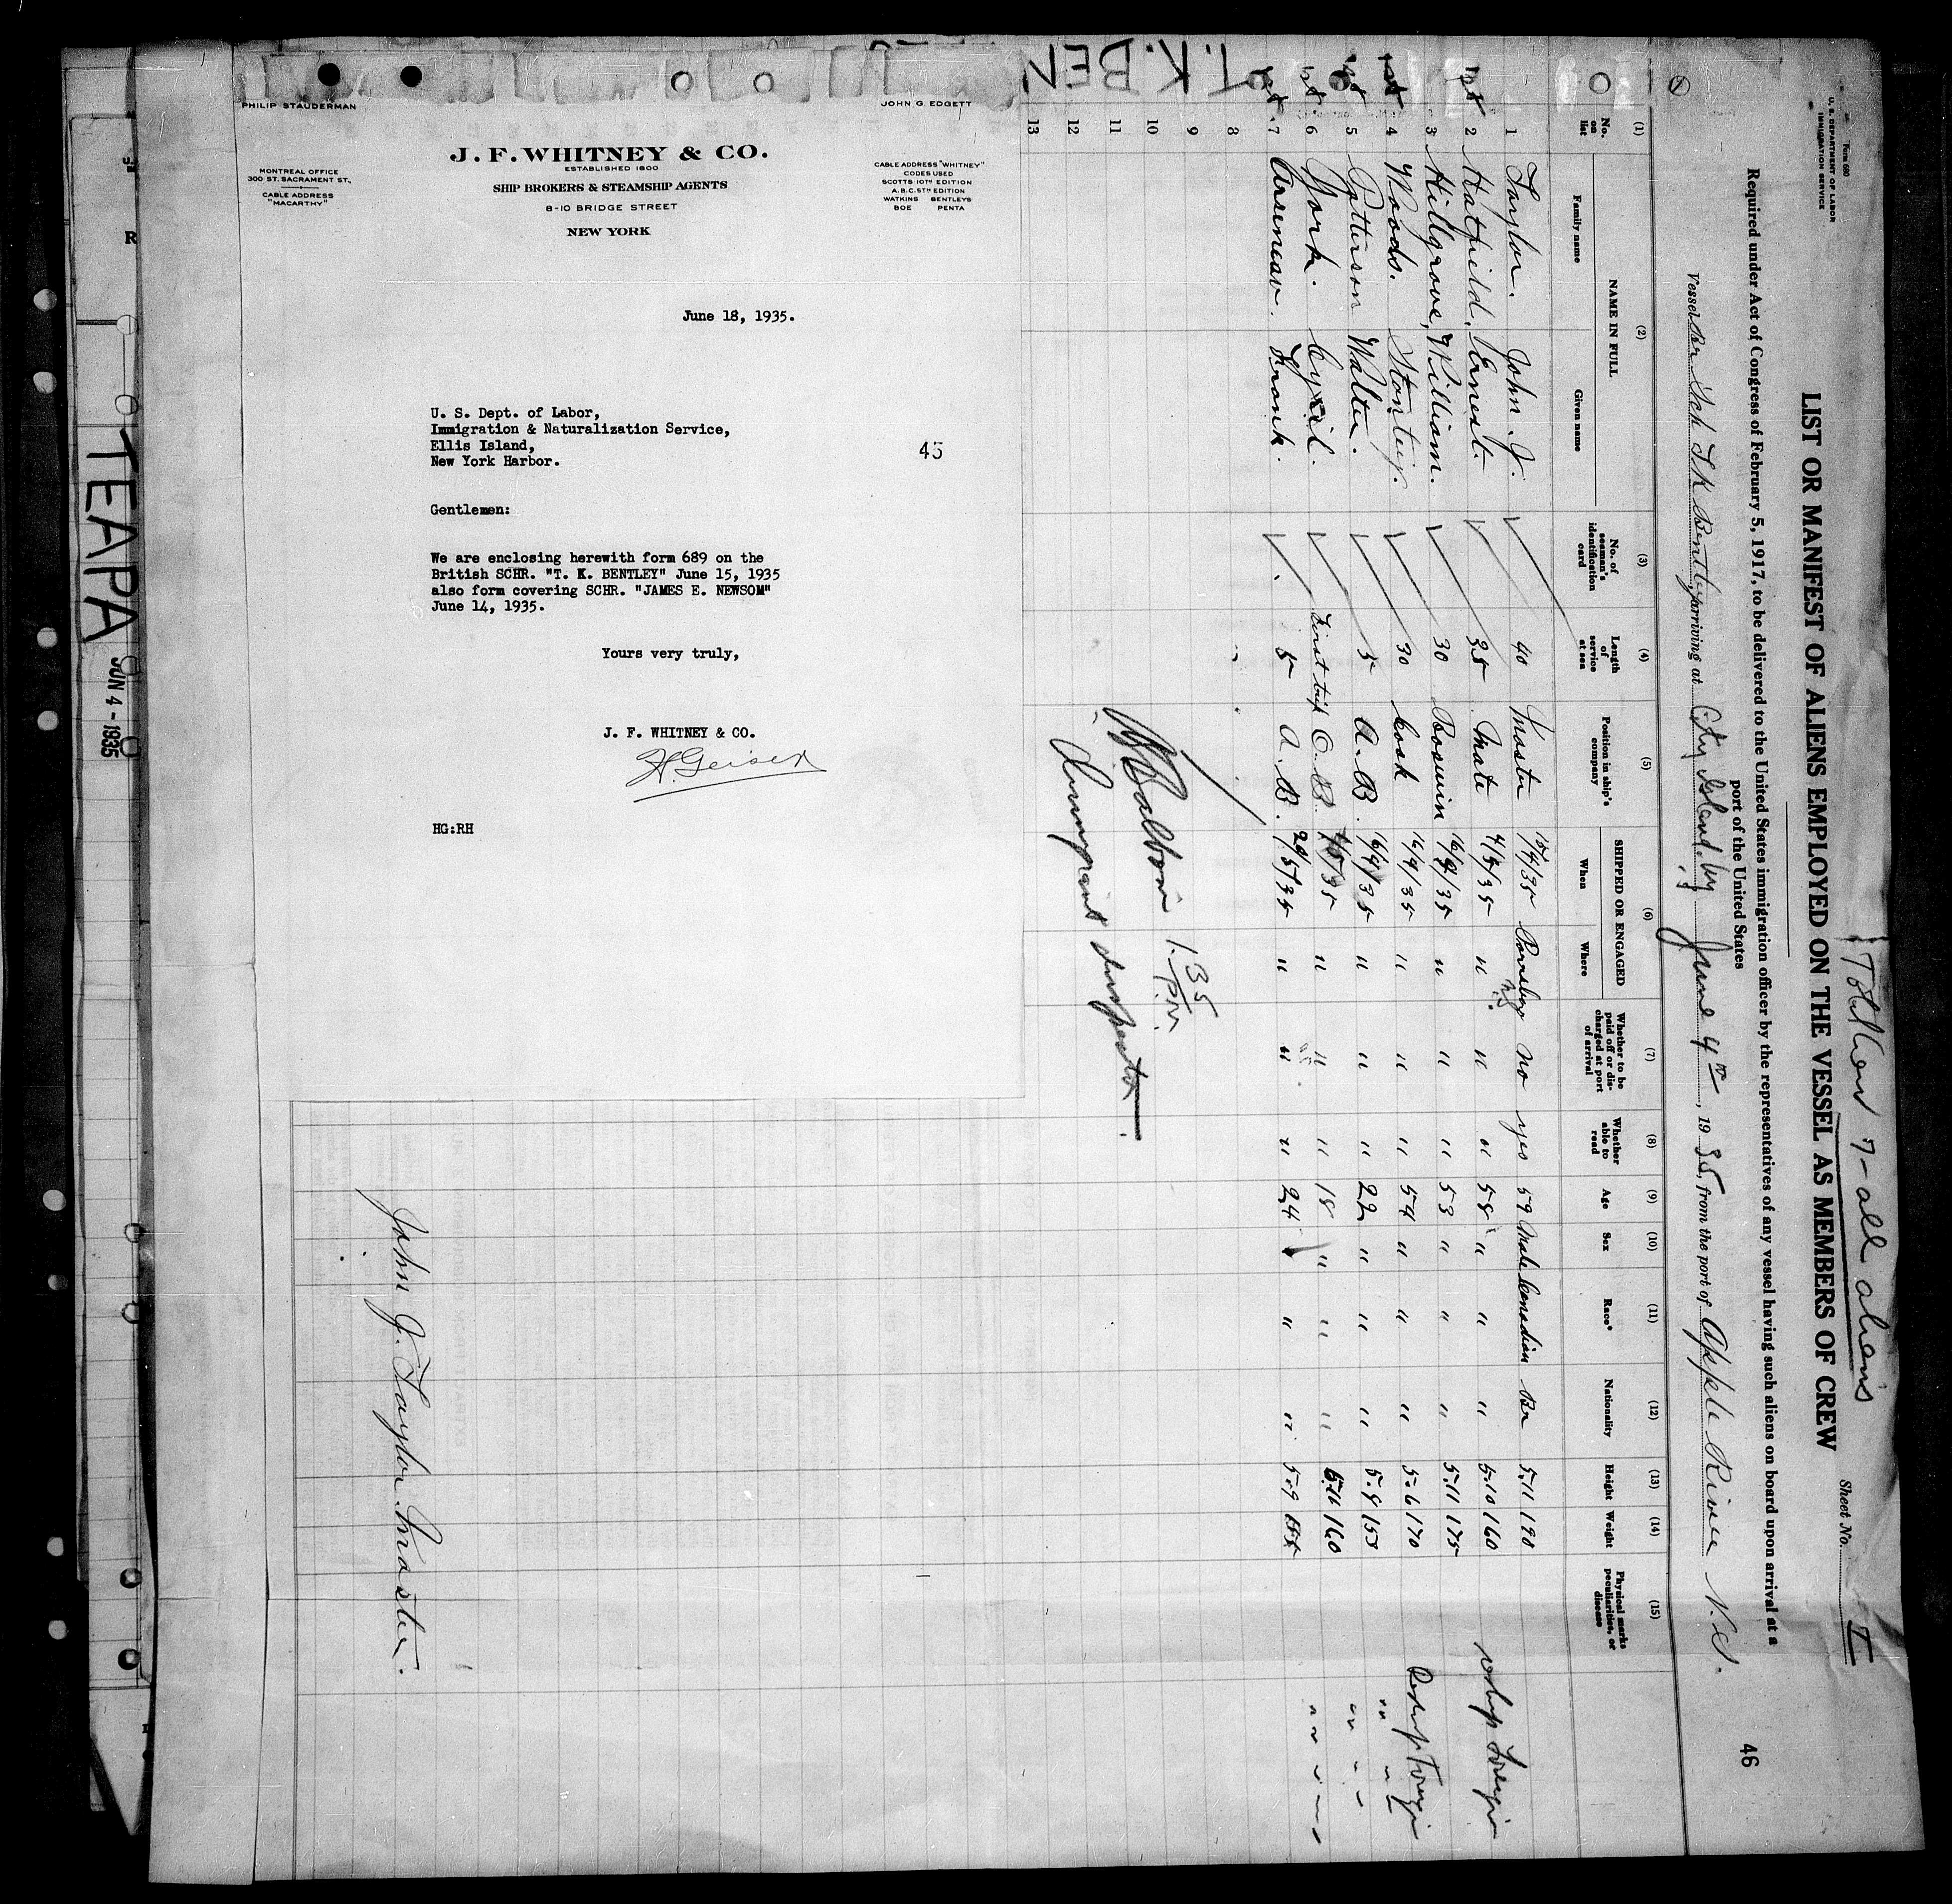 PHILIP STAUDERMAN
JOHN G. EDGETT
J. F. WHITNEY & CO.
ESTABLISHED 1800
SHIP BROKERS & STEAMSHIP AGENTS
8-10 BRIDGE STREET
NEW YORK
MONTREAL OFFICE
300 ST. SACRAMENT ST.,
CABLE ADDRESS
"MACARTHY"
CABLE ADDRESS "WHITNEY"
CODES USED
SCOTTS 10TH EDITION
A.B.C. 5TH EDITION
WATKINS BENTLEYS
BOE PENTA
June 18, 1935.
U. S. Dept. of Labor,
Immigration & Naturalization Service,
Ellis Island,
New York Harbor.
45
Gentlemen:
We are enclosing herewith form 689 on the
British SCHR. "T. K. BENTLEY" June 15, 1935
also form covering SCHR. "JAMES E. NEWSOM"
June 14, 1935.
Yours very truly,
J. F. WHITNEY & CO.
H. Geiser
HG:RH
TEAPA
JUN 4 - 1935
T.K. BEN
Form 680
U. S. DEPARTMENT OF LABOR
IMMIGRATION SERVICE
Total Crew 7 - all aliens
Sheet No. 1
LIST OR MANIFEST OF ALIENS EMPLOYED ON THE VESSEL AS MEMBERS OF CREW
Required under Act of Congress of February 5, 1917, to be delivered to the United States immigration officer by the representatives of any vessel having such aliens on board upon arrival at a
port of the United States
46
Vessel Br Sch T K Bentley, arriving at City Island, N.Y., June 4th, 1935, from the port of Apple River N.S.
(1) (2) (3) (4) (5) (6) (7) (8) (9) (10) (11) (12) (13) (14) (15)
No. on list
NAME IN FULL
Family name
Given name
No. of seaman's identification card
Length of service at sea
Position in ship's company
SHIPPED OR ENGAGED
When
Where
Whether to be paid off or discharged at port of arrival
Whether able to read
Age
Sex
Race*
Nationality
Height
Weight
Physical marks, peculiarities, or disease
1 Taylor. John J. 40 Master 15/4/35 Parrsboro N.S. no yes 59 Male Canadian Br 5.11 190
2 Hatfield. Ernest. 35 Mate 4/3/35 " " " 58 " " " 5.10 160
3 Hillgrove, William. 30 Boswin 16/4/35 " " " 53 " " " 5.11 175
4 Woods. Stanley. 30 Cook 16/4/35 " " " 54 " " " 5.6 170
5 Patterson Walter. 5 A.B. 16/4/35 " " " 22 " " " 5.9 153
6 York. Cyril. First trip O.B. " " " 18 " " " 160
7 Arseneau. Frank. 5 A.B. 20/5/35 " " " 24 " " " 5.9
8
9
10
11
12
13
1.35 P.M.
Immigrant Inspector
John J. Taylor. Master.